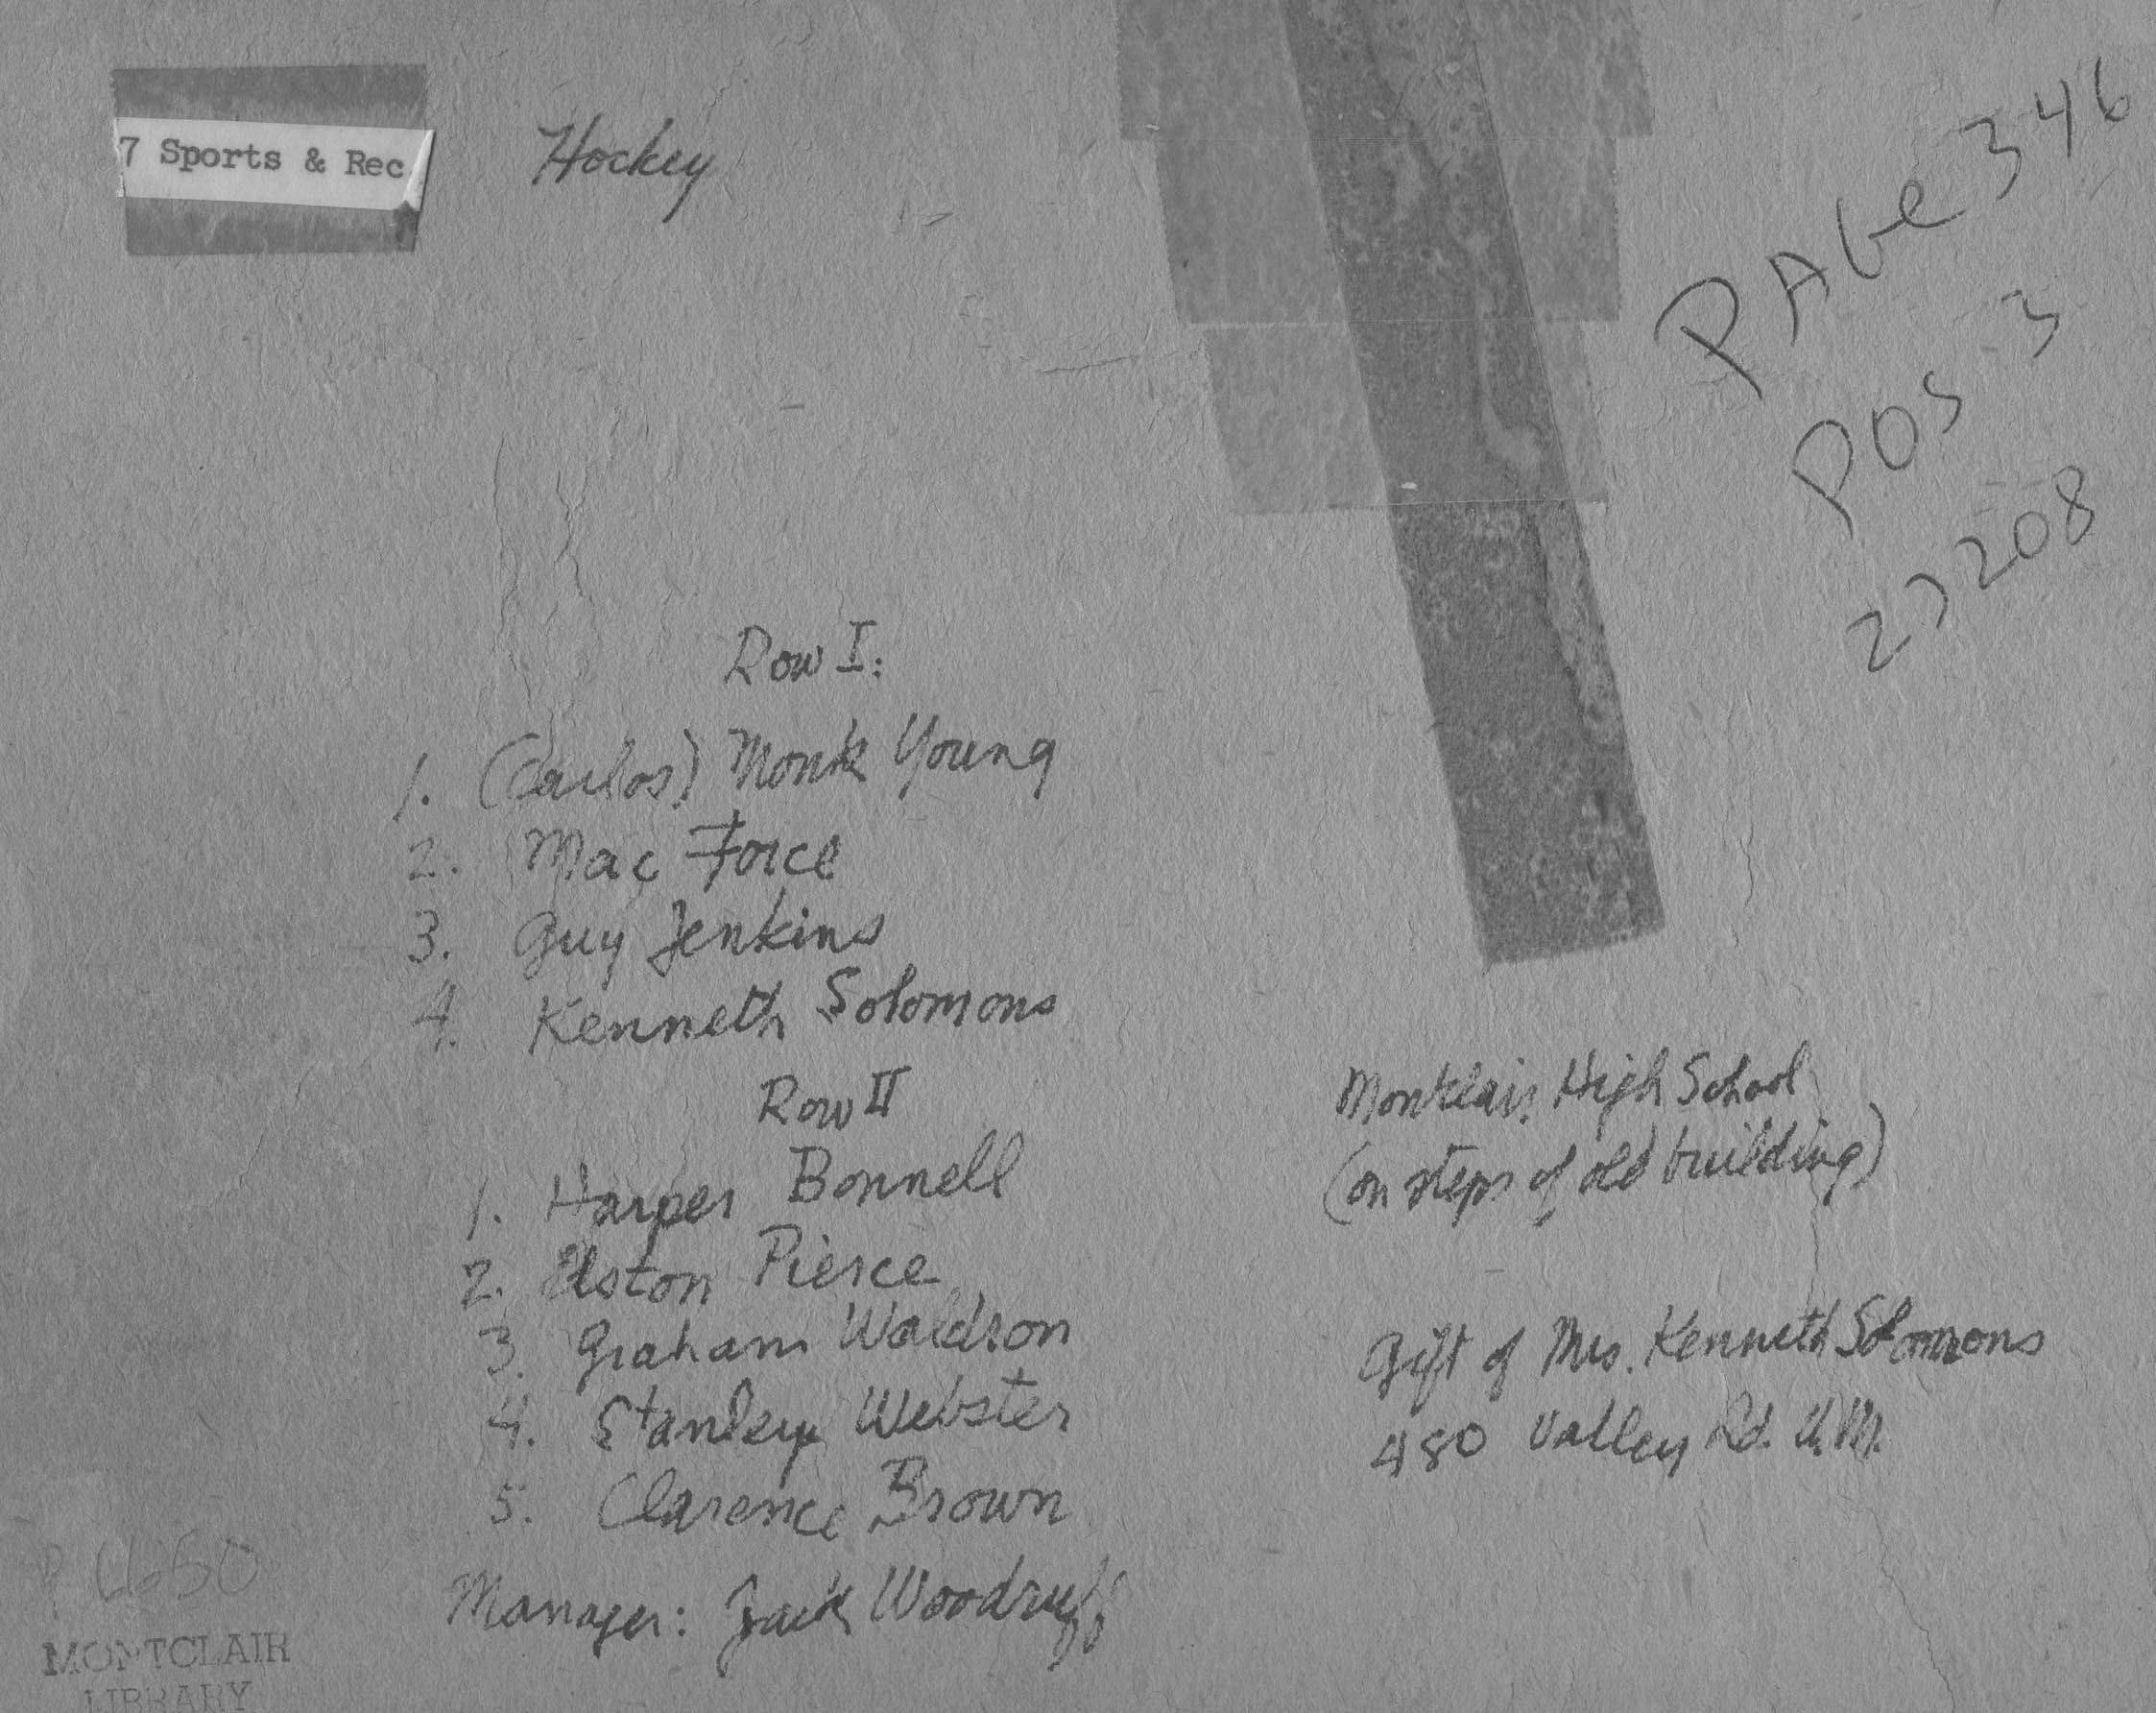 7 Sports & Rec
Hockey
PAGe 346
POS 3
27208
Row I:
1. (Carlos) Monk Young
2. Mac Force
3. Guy Jenkins
4. Kenneth Solomons
Row II
1. Harper Bonnell
2. Elston Pierce
3. Graham Waldron
4. Stanley Webster
5. Clarence Brown
Manager: Jack Woodruff
Montclair High School
(on steps of old building)
Gift of Mrs. Kenneth Solomons
480 Valley Rd. U.M.
P 6650
MONTCLAIR
LIBRARY